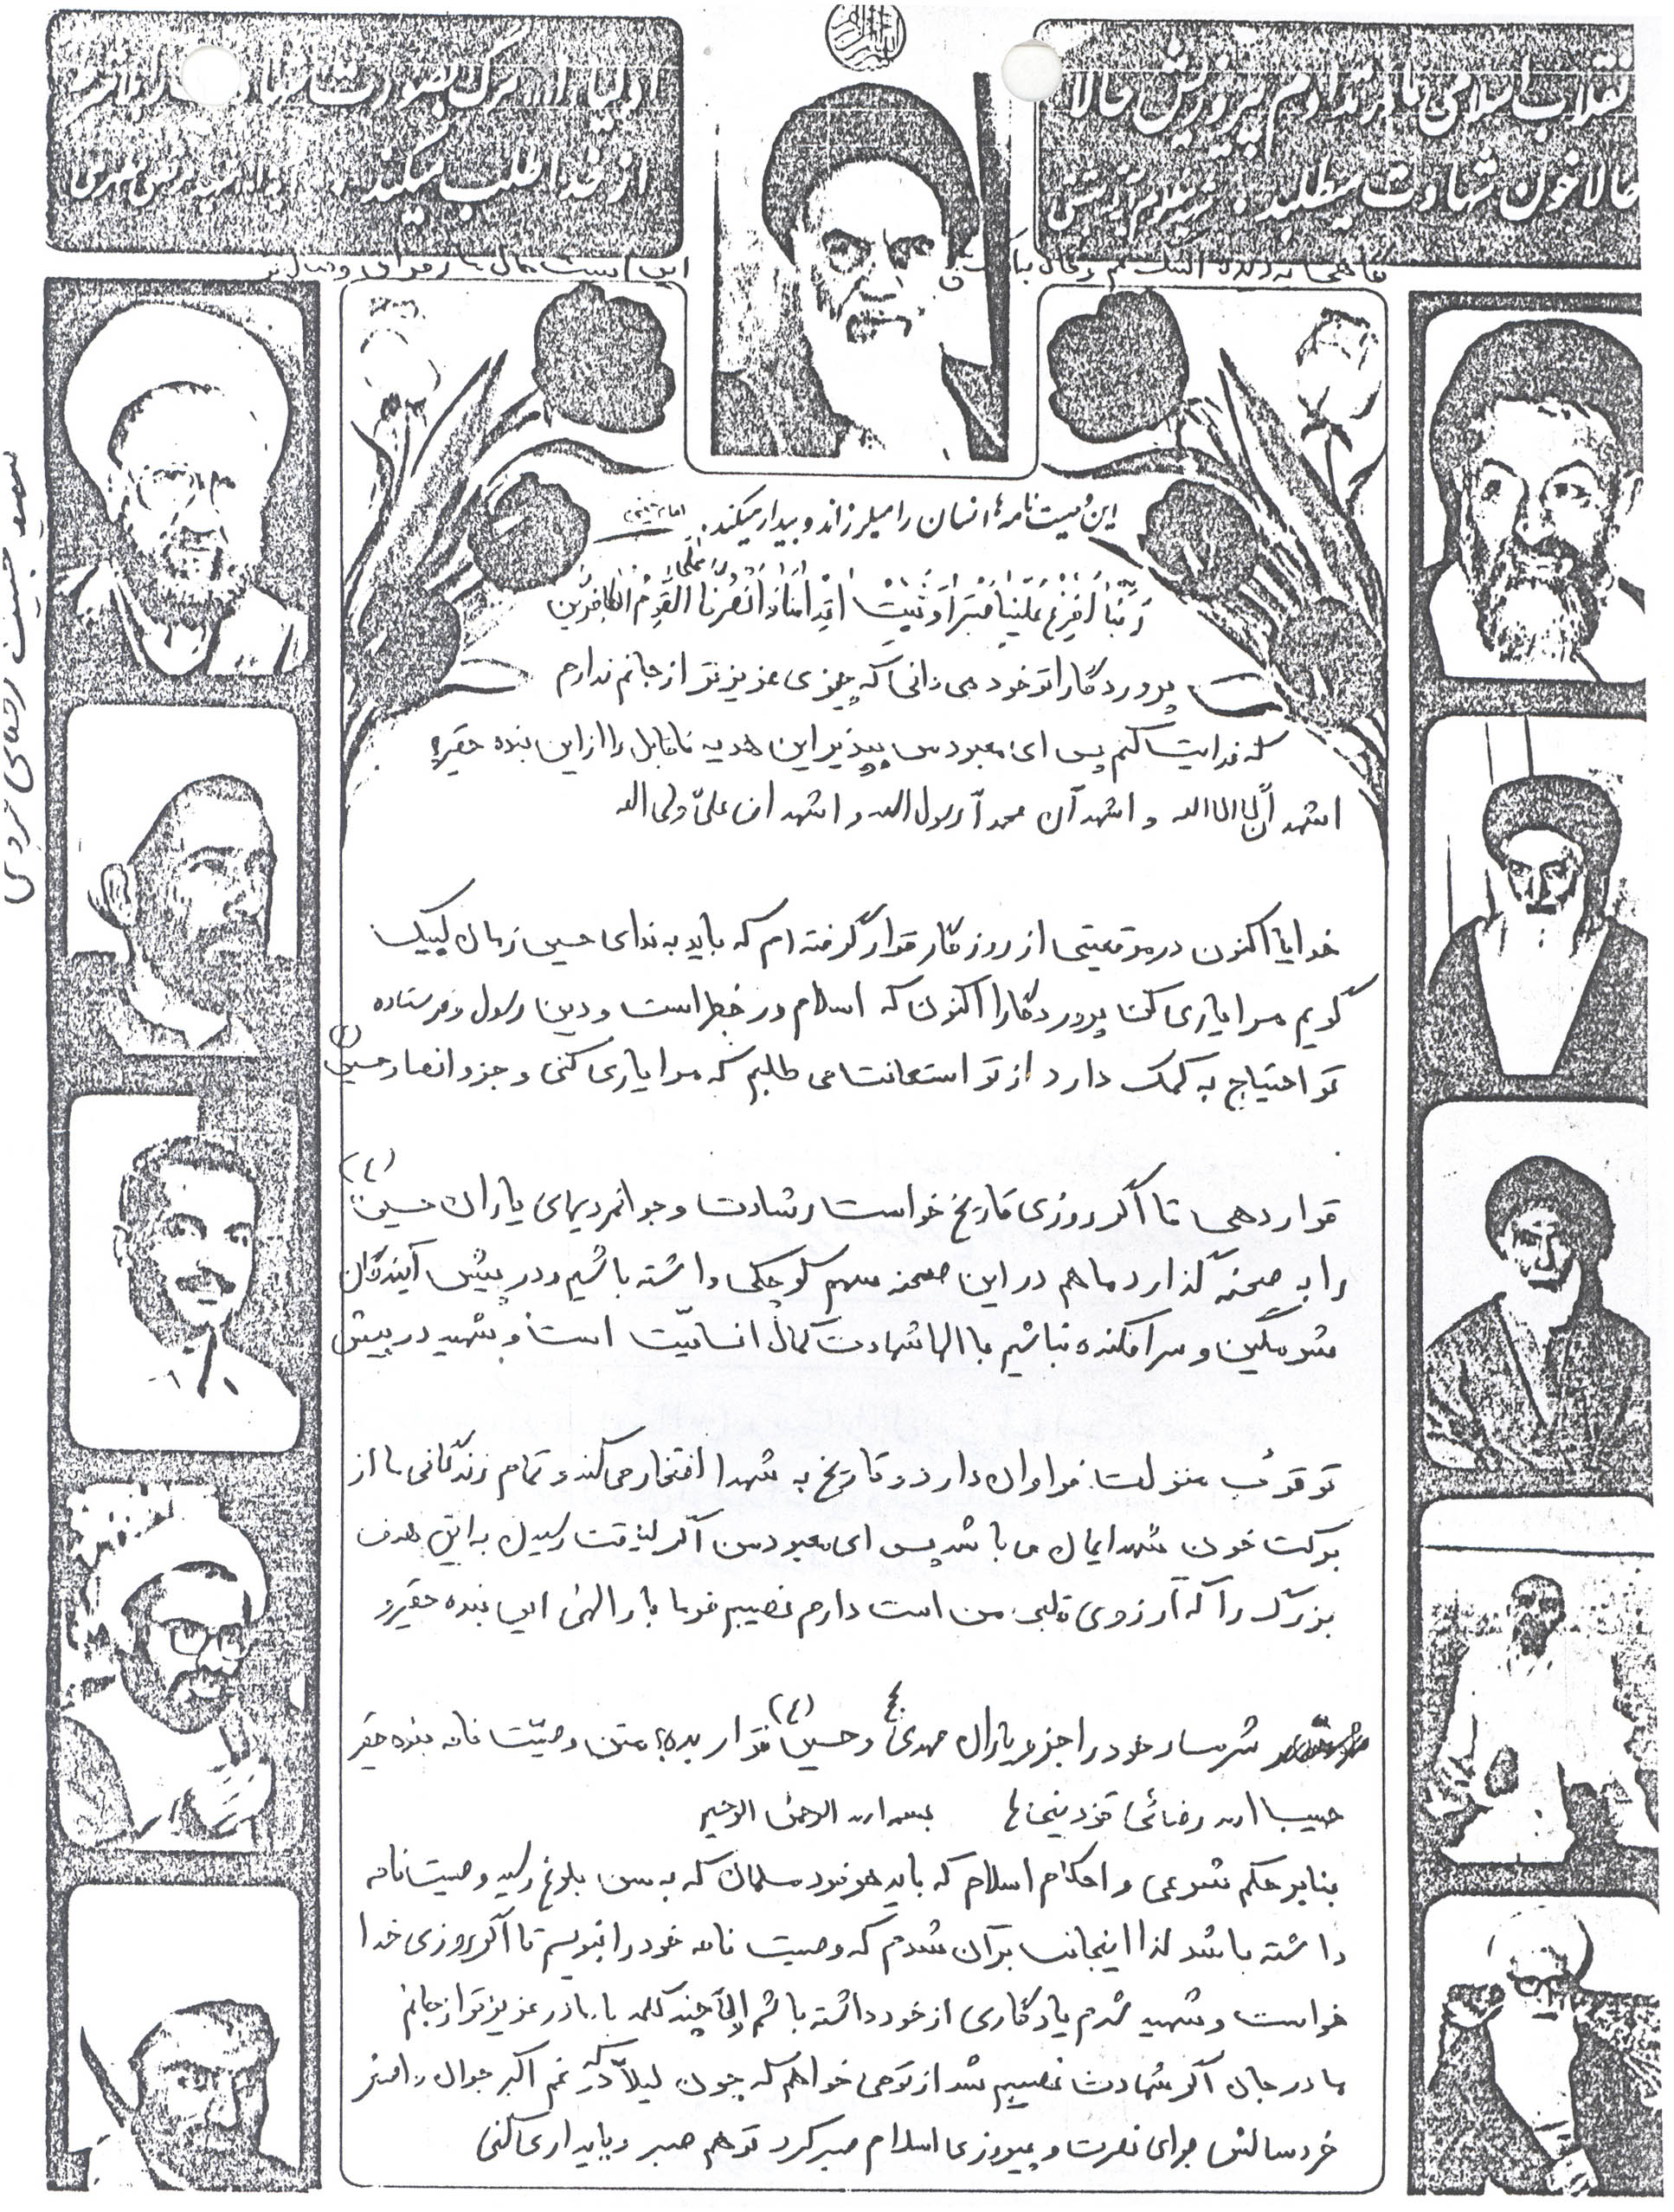 انقلاب اسلامی ما در تداوم پیروزیش حالا
حالا خون شهادت میطلبد. شهید مظلوم آیة بهشتی
اولیاء از مرگ بصورت شهادت را
از خدا طلب میکند. مرتضی مطهری
این وصیت نامه ها انسان را میلرزاند و بیدار میکند. امام خمینی
رَبَّنا اَفْرِغْ عَلَیْنا صَبْراً وَ ثَبِّتْ اَقْدامَنا وَ انْصُرْنا عَلَی الْقَوْمِ الْکافِرینَ
پروردگارا تو خود می دانی که چیزی عزیزتر از جانم ندارم
که فدایت کنم پس ای معبود من بپذیر این هدیه ناقابل را از این بنده حقیر
اشهد ان لا اله الا الله و اشهد ان محمداً رسول الله و اشهد ان علیّ ولی الله
خدایا اکنون در موقعیتی از روزگار قرار گرفته ام که باید به ندای حسین زمان لبیک
گویم مرا یاری کن پروردگارا اکنون که اسلام در خطر است و دین رسول و فرستاده
تو احتیاج به کمک دارد از تو استعانت می طلبم که مرا یاری کنی و جزو انصار حسین (ع)
قرار دهی تا اگر روزی تاریخ خواست رشادت و جوانمردیهای یاران حسین (ع)
را به صحنه گذارد ما هم در این صحنه سهم کوچکی داشته باشیم و در پیش آیندگان
شرمگین و سرافکنده نباشیم بارالها شهادت کمال انسانیّت است و شهید در پیش
تو قرب منزلت فراوان دارد و تاریخ به شهدا افتخار می کند و تمام زندگانی ما از
برکت خون شهدایمان می باشد پس ای معبود من اگر لیاقت رسیدن به این هدف
بزرگ را که آرزوی قلبی من است دارم نصیبم فرما بارالهی این بنده حقیر و
شرمسار خود را جزو یاران مهدی (ع) و حسین (ع) قرار بده، متن وصیّت نامه بنده حقیر
حبیب الله رضائی قزوینی ها بسم الله الرحمن الرحیم
بنابر حکم شرعی و احکام اسلام که باید هر فرد مسلمان که به سن بلوغ رسید وصیت نامه
داشته باشد لذا اینجانب بر آن شدم که وصیت نامه خود را بنویسم تا اگر روزی خدا
خواست و شهید شدم یادگاری از خود داشته باشم الا چند کلمه با مادر عزیزتر از جانم
مادر جان اگر شهادت نصیبم شد از تو می خواهم که چون لیلا که در غم اکبر جوان
خردسالش برای نصرت و پیروزی اسلام صبر کرد تو هم صبر و پایداری کنی